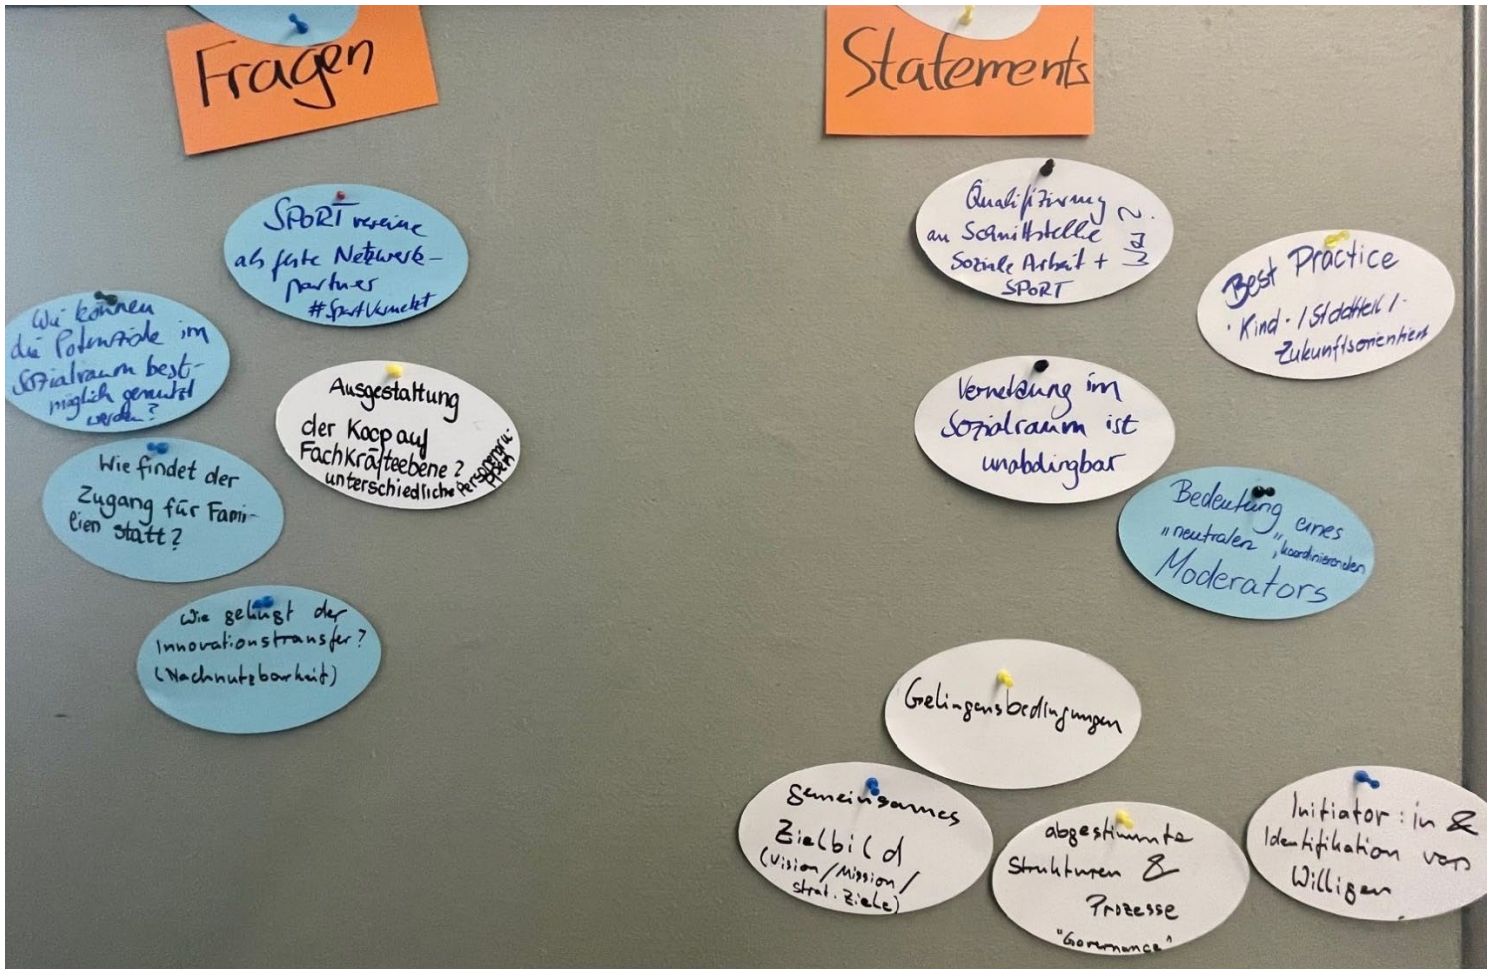 Fragen
SPORTvereine
als feste Netzwerk-
partner
#SportVernetzt
Wie können
die Potenziale im
Sozialraum best-
möglich genutzt
werden?
Ausgestaltung
der Koop auf
Fachkräfteebene?
unterschiedliche Personengru-
ppen
Wie findet der
Zugang für Fami-
lien statt?
Wie gelingt der
Innovationstransfer?
(Nachnutzbarkeit)
Statements
Qualifizierung
an Schnittstelle
Soziale Arbeit +
SPORT
Best Practice
• Kind- / Stadtteil /
Zukunftsorientiert
Vernetzung im
Sozialraum ist
unabdingbar
Bedeutung eines
"neutralen", koordinierenden
Moderators
Gelingensbedingungen
gemeinsames
Zielbild
(Vision/Mission/
strat. Ziele)
abgestimmte
Strukturen &
Prozesse
"Governance"
Initiator:in &
Identifikation von
Willigen